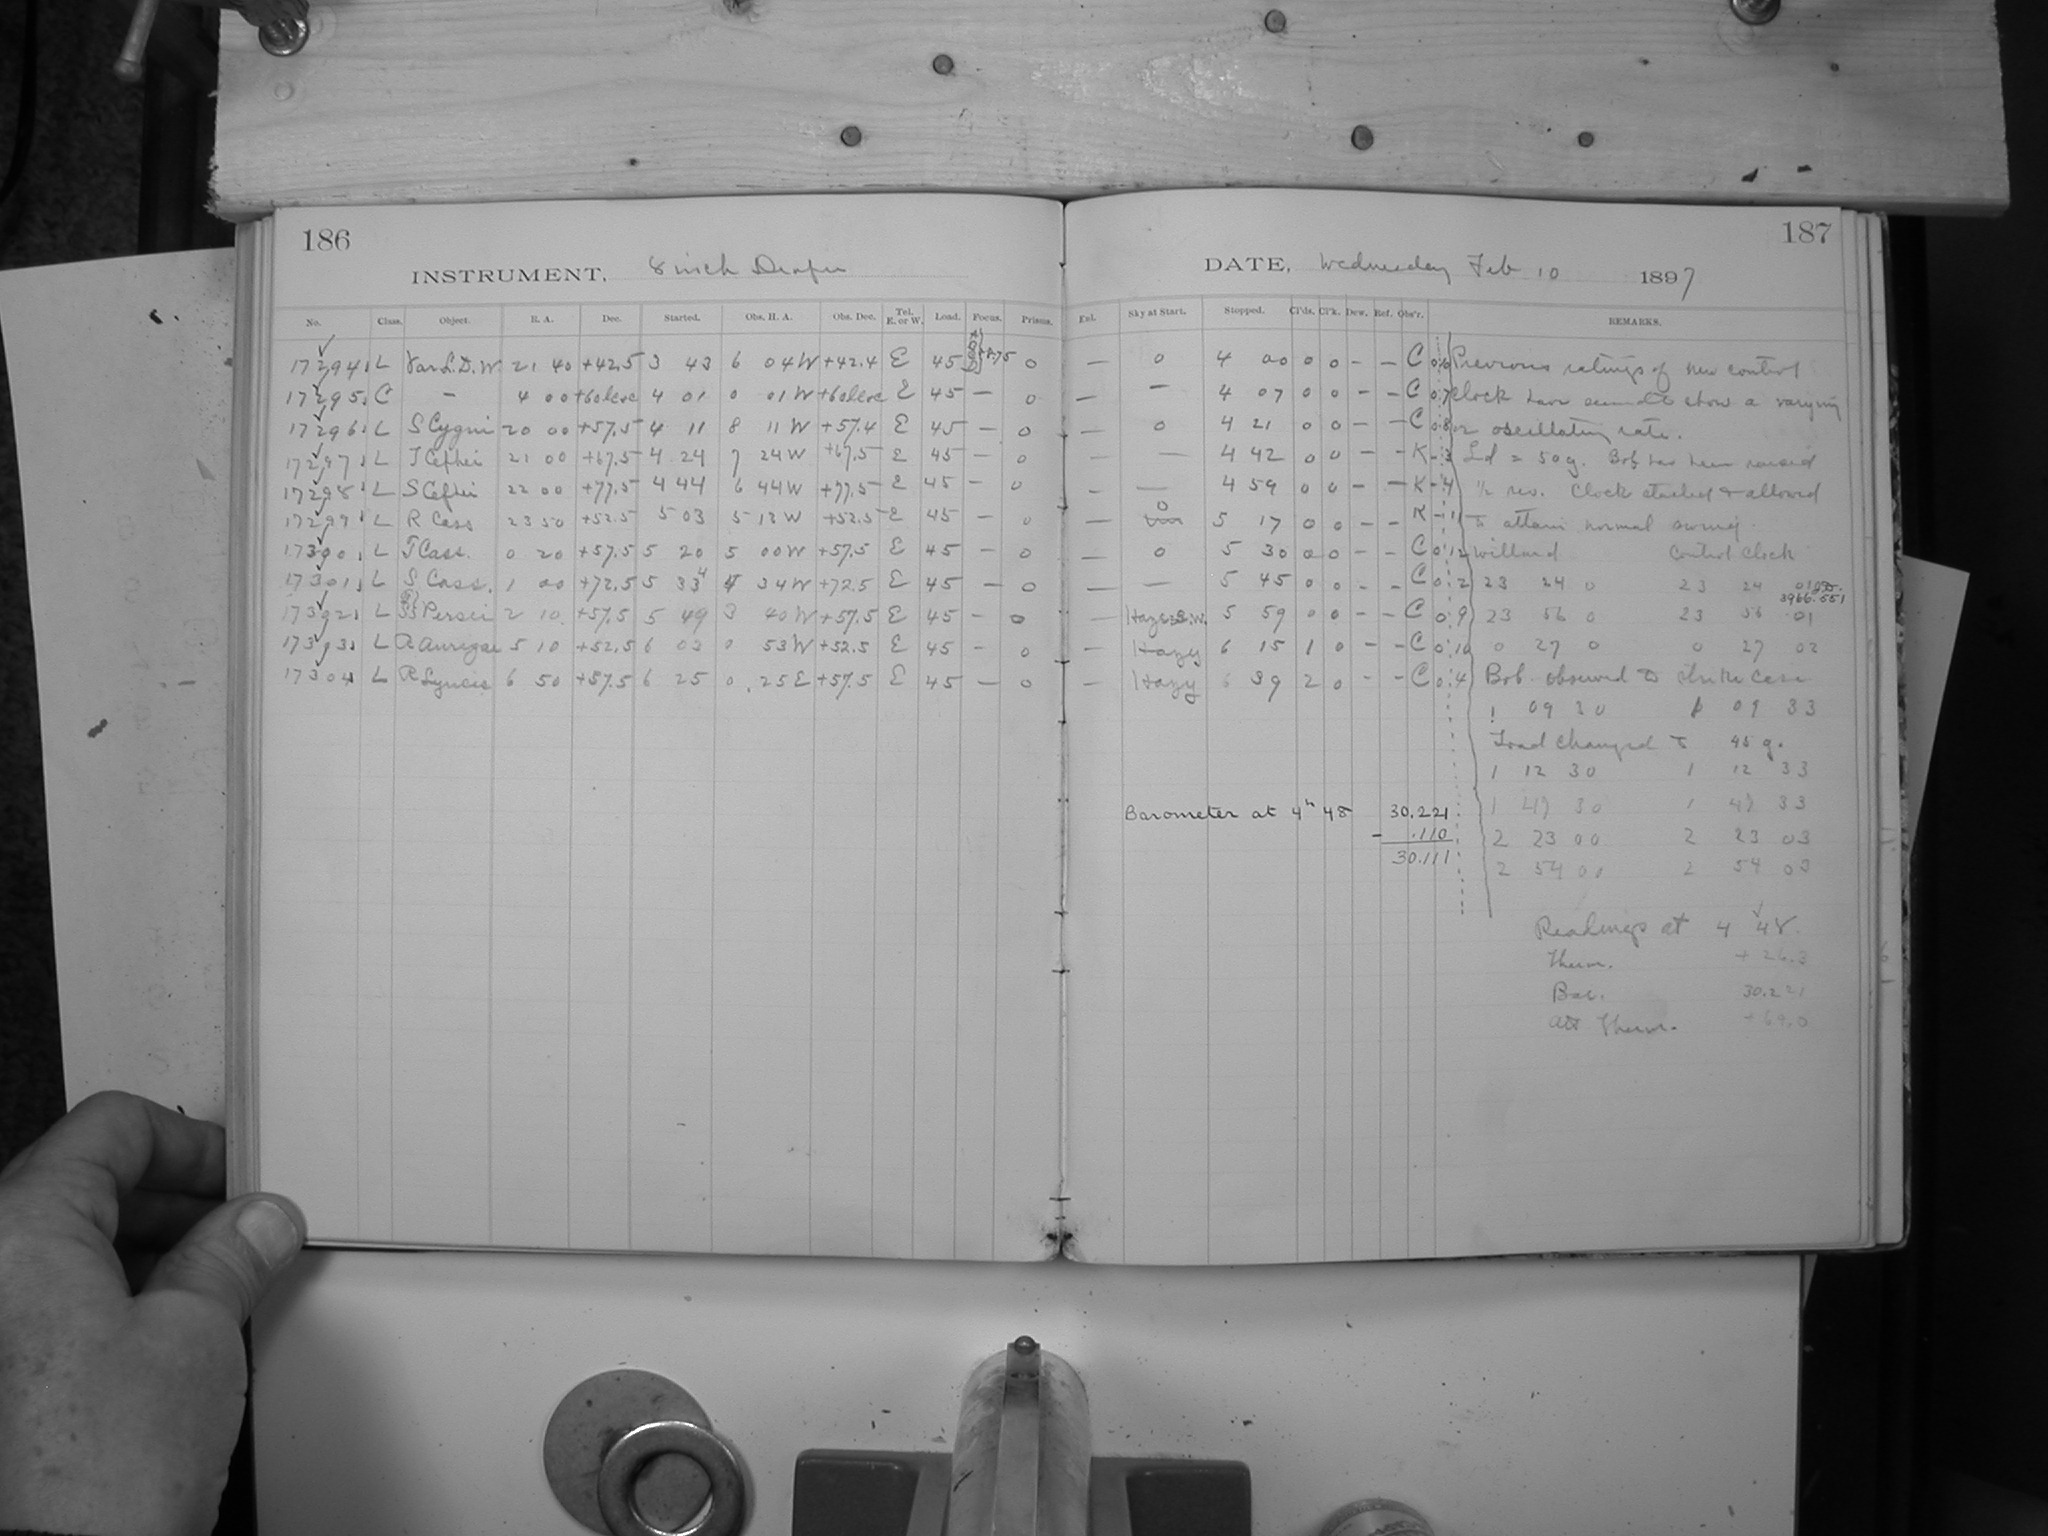 186
INSTRUMENT, 8 inch Draper
No. Class. Object. R. A. Dec. Started. Obs. H. A. Obs. Dec. Tel. E. or W. Load. Focus. Prisms.
17294 L Var L.D.W 21 40 +42.5 3 43 6 04 W +42.4 E 45 8.75 0
17295 C – 4 00 4 01 0 01 W E 45 – 0
17296 L S Cygni 20 00 +57.5 4 11 8 11 W +57.4 E 45 – 0
17297 L T Cephei 21 00 +67.5 4 24 7 24 W +67.5 E 45 – 0
17298 L S Cephei 22 00 +77.5 4 44 6 44 W +77.5 E 45 – 0
17299 L R Cass 23 50 +52.5 5 03 5 13 W +52.5 E 45 – 0
17300 L T Cass. 0 20 +57.5 5 20 5 00 W +57.5 E 45 – 0
17301 L S Cass. 1 00 +72.5 5 33 4 34 W +72.5 E 45 – 0
17302 L Persei 2 10 +57.5 5 49 3 40 W +57.5 E 45 – 0
17303 L R Aurigae 5 10 +52.5 6 03 0 53 W +52.5 E 45 – 0
17304 L R Lyncis 6 50 +57.5 6 25 0 25 E +57.5 E 45 – 0
187
DATE, Wednesday Feb 10 1897
Exl. Sky at Start. Stopped. Cl'ds. Cl'k. Dew. Ref. Obs'r. REMARKS.
– 0 4 00 0 0 – – C 0.6 Previous ratings of new control
– – 4 07 0 0 – – C 0.7 clock have seemed to show a varying
– 0 4 21 0 0 – – C 0.8 or oscillating rate.
– – 4 42 0 0 – – K -3 Ld = 50 g. Bob has been raised
– – 4 59 0 0 – – K -4 ½ rev. Clock started & allowed
– 0 5 17 0 0 – – K -11 to attain normal swing.
– 0 5 30 0 0 – – C 0.12 Willard Control Clock
– – 5 45 0 0 – – C 0.2 23 24 0 23 24 01
3966.551
– Hazy S.W. 5 59 0 0 – – C 0.9 23 56 0 23 56 01
– Hazy 6 15 1 0 – – C 0.10 0 27 0 0 27 02
– Hazy 6 39 2 0 – – C 0.4 Bob observed to strike case
1 09 30 1 09 33
Load changed to 45 g.
1 12 30 1 12 33
Barometer at 4ʰ 48 30.221
1 47 30 1 47 33
- .110
2 23 00 2 23 03
30.111
2 54 00 2 54 03
Readings at 4 48.
Therm. + 26.3
Bar. 30.221
Att Therm. +69.0